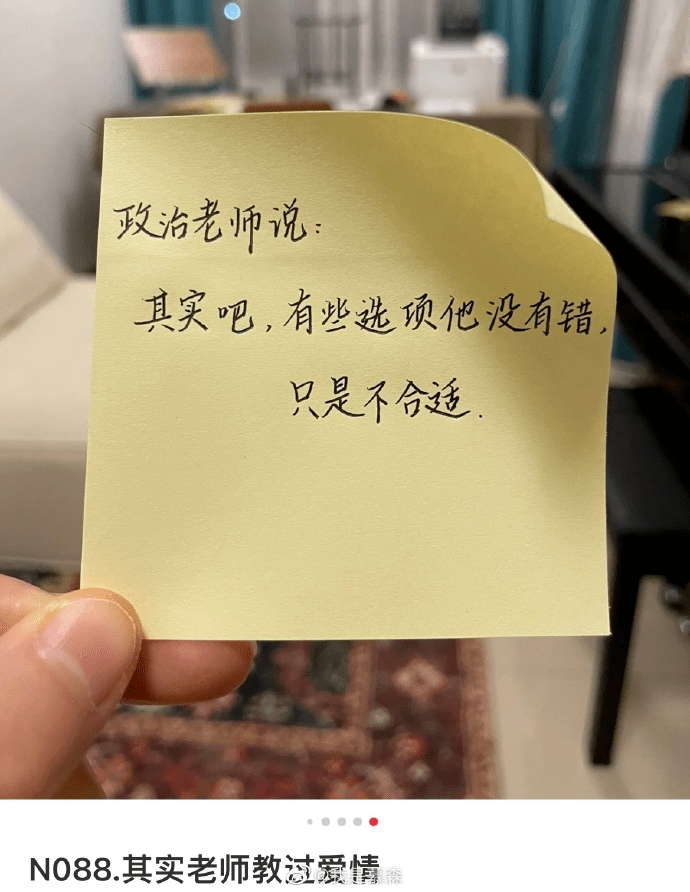 政治老师说：
其实吧，有些选项他没有错，
只是不合适.
N088.其实老师教过爱情
@我是慕森